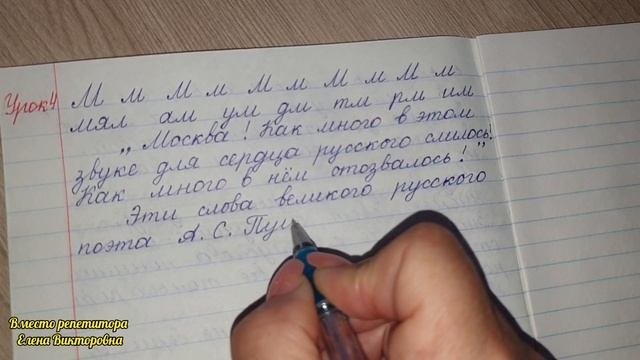 Урок 4
М м М м М м М м М м
мял ам ум дм тм рм им
„Москва! Как много в этом
звуке для сердца русского слилось!
Как много в нём отозвалось!”
Эти слова великого русского
поэта А. С. Пуш
Вместо репетитора
Елена Викторовна